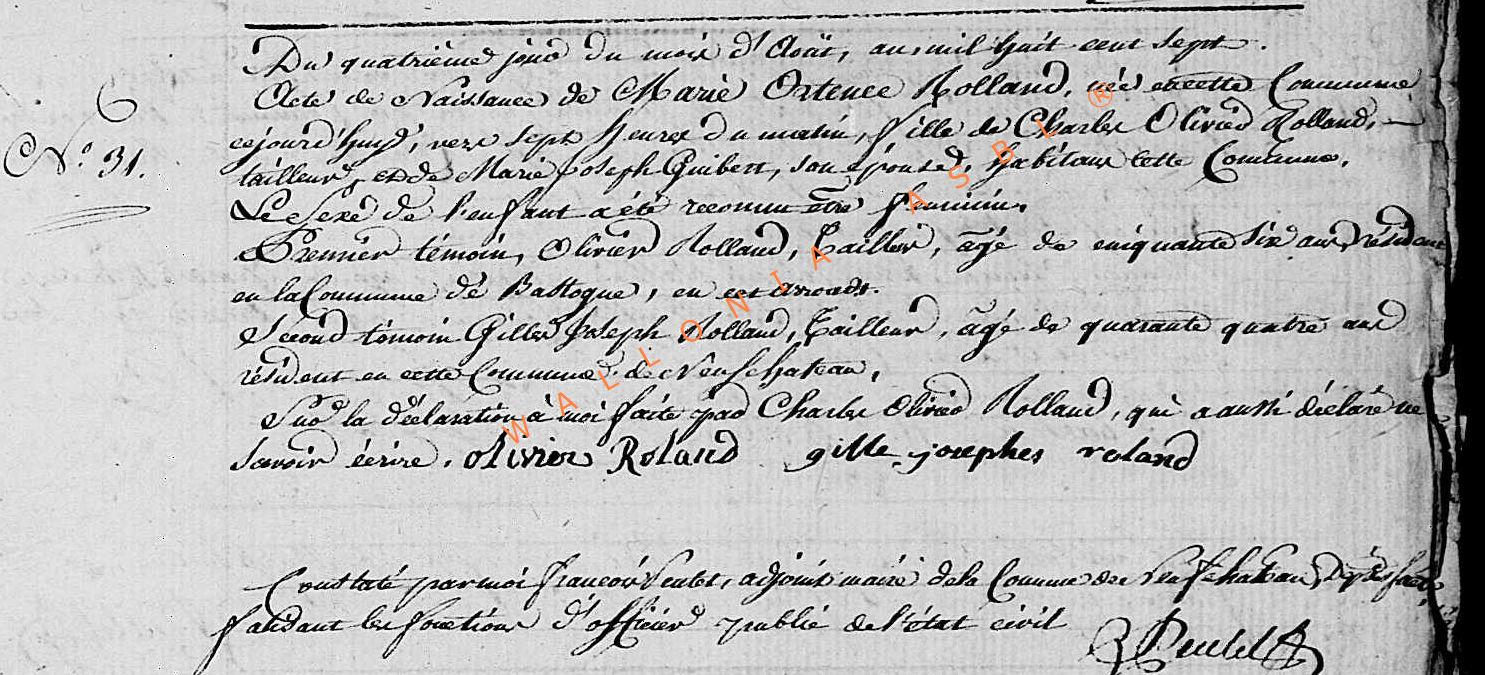 Du quatrième jour du mois d'Août, an mil huit cent sept.
Acte de Naissance de Marie Ortence Rolland, née en cette Commune
N.° 31.
cejourd'huy, vers sept heures du matin, fille de Charles Olivier Rolland,
tailleur, et de Marie Joseph Guibert, son épouse, habitans cette Commune.
Le sexe de l'enfant a été reconnu être féminin.
Premier témoin, Olivier Rolland, Tailleur, âgé de cinquante six ans, résidant
en la Commune de Bastogne, en cet arrondt.
Second témoin Gilles Joseph Rolland, Tailleur, âgé de quarante quatre ans
résident en cette Commune de Neufchateau,
Sur la déclaration à moi faite par Charles Olivier Rolland, qui a aussi déclaré ne
Savoir écrire. olivier Roland gille josephes roland
Constaté par moi françois, adjoint maire de la Commune de Neufchateau,
faisant les fonctions d'officier public de l'état civil
WALLONIA ASBL ®